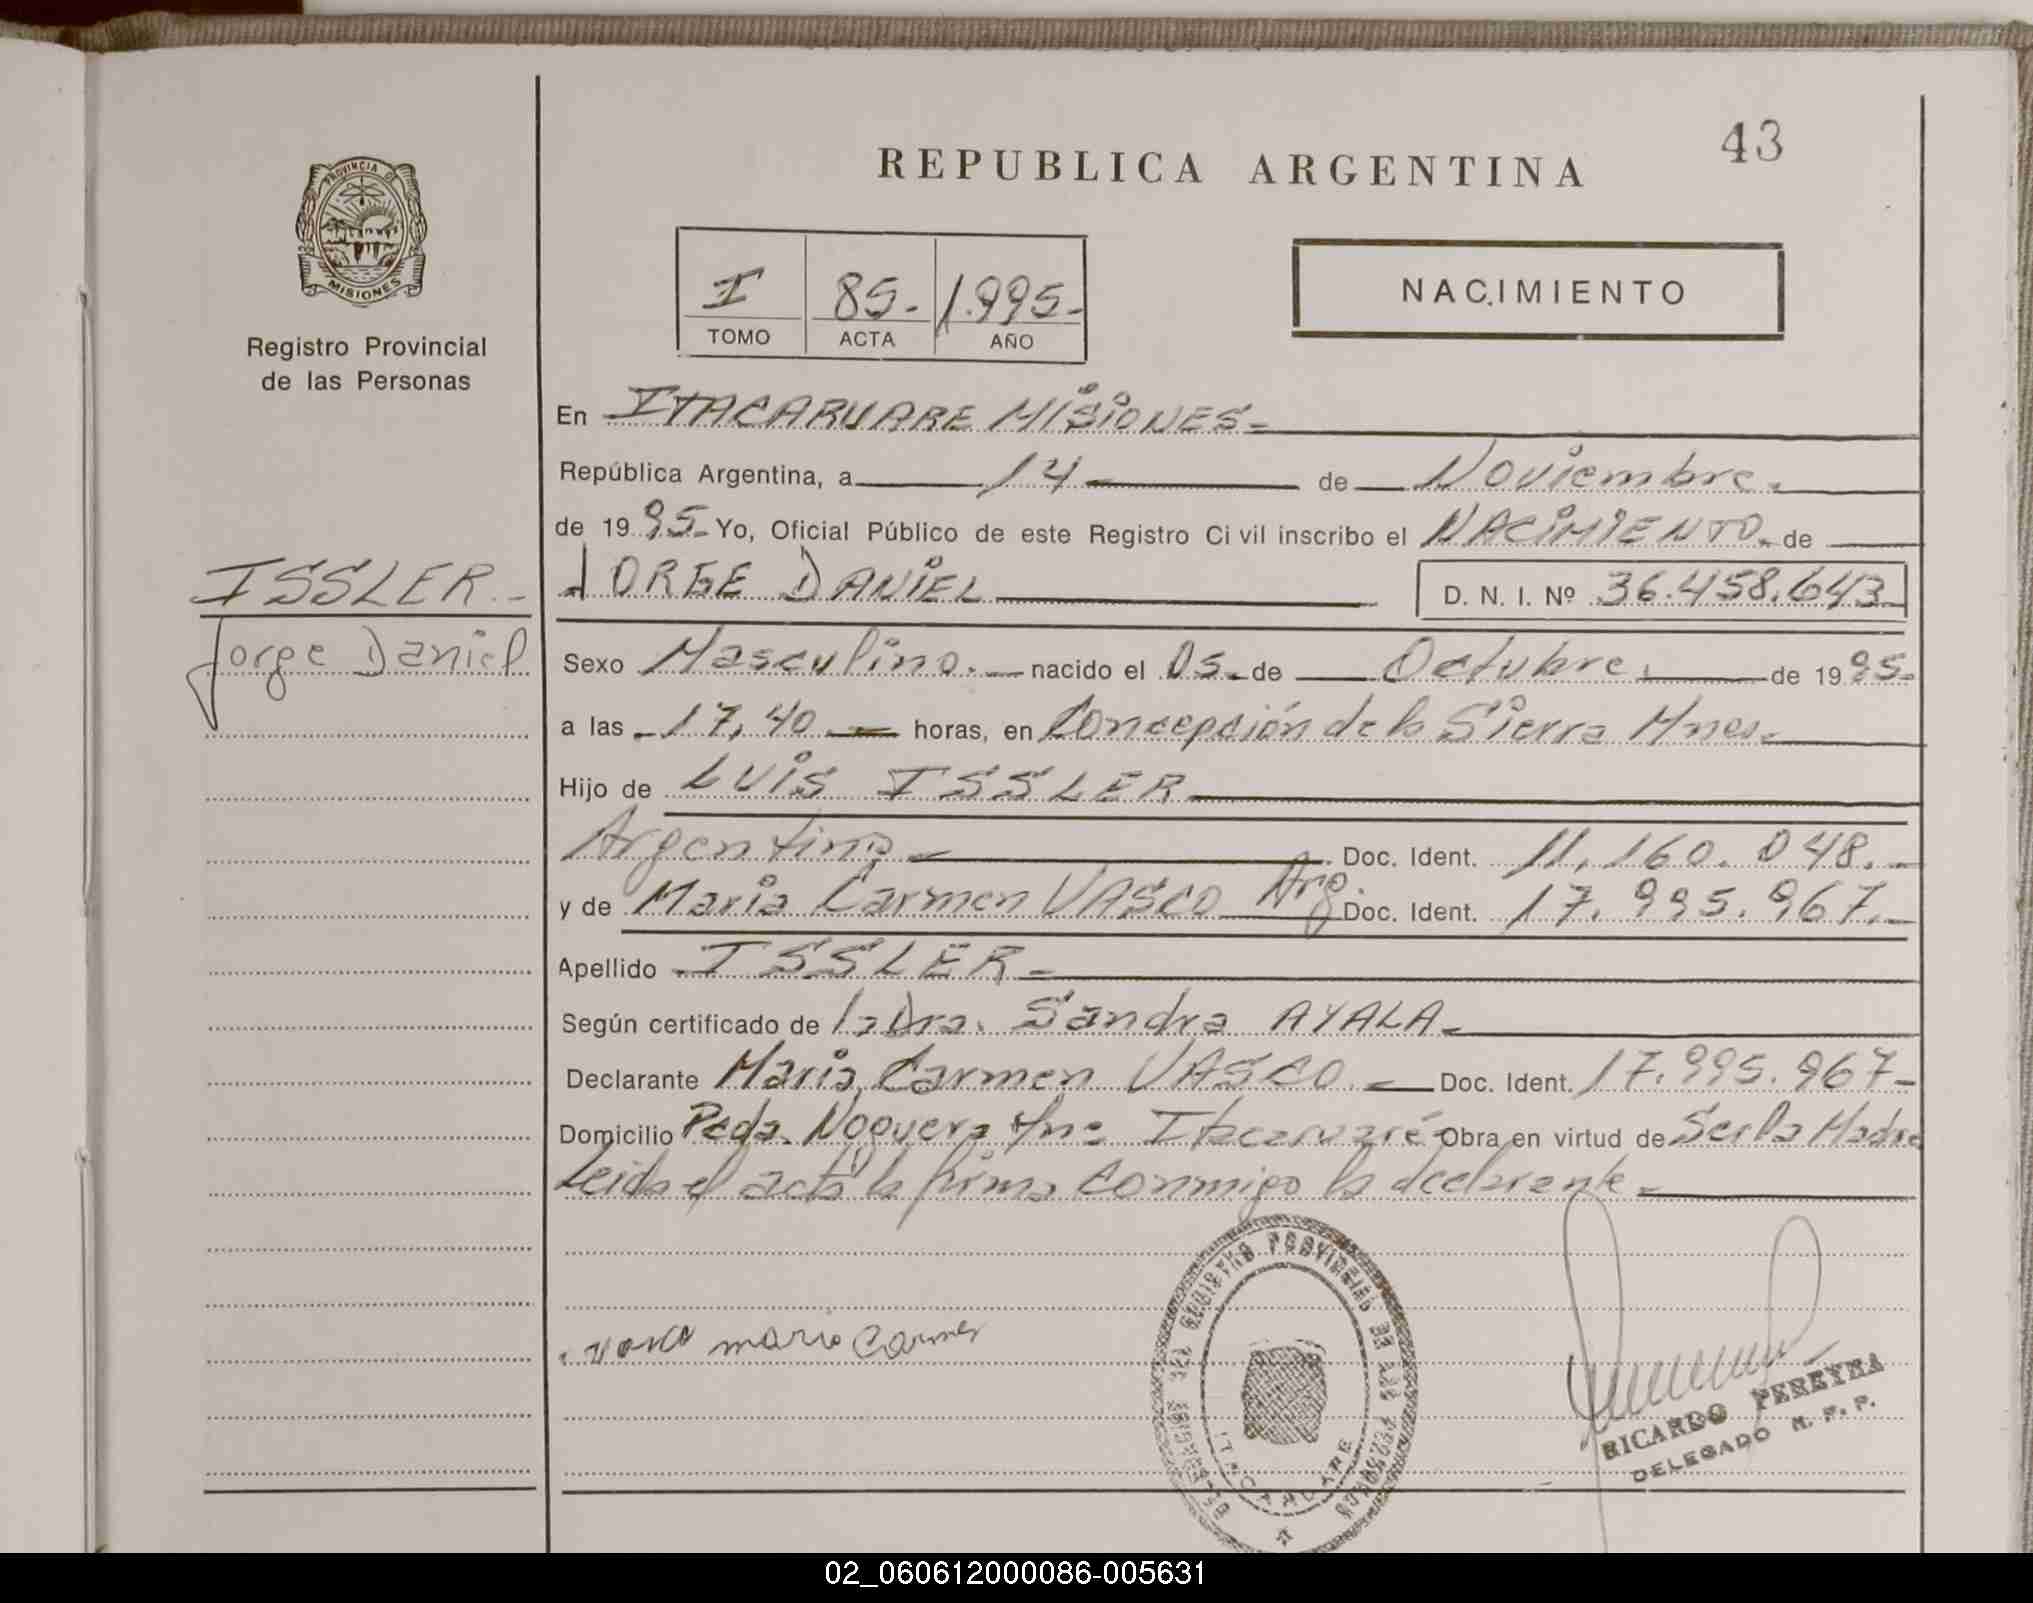 43
REPUBLICA ARGENTINA
PROVINCIA DE
MISIONES
Registro Provincial
de las Personas
I 85- 1.995-
TOMO ACTA AÑO
NACIMIENTO
En ITACARUARE MISIONES-
República Argentina, a 14 de Noviembre.
de 19 95- Yo, Oficial Público de este Registro Civil inscribo el NACIMIENTO de
ISSLER.-
Jorge Daniel
JORGE DANIEL D. N. I. Nº 36.458.643
Sexo Masculino.- nacido el 05- de Octubre. de 19 95-
a las 17,40 horas, en Concepción de la Sierra Mnes.
Hijo de LUIS ISSLER
Argentino Doc. Ident. 11.160.048.-
y de Maria Carmen VASCO Arg. Doc. Ident. 17.995.967.-
Apellido ISSLER-
Según certificado de la Dra. Sandra AYALA-
Declarante Maria Carmen VASCO Doc. Ident. 17.995.967-
Domicilio Pcda. Noguera Itacaruaré Obra en virtud de Ser la Madre
Leida el acta la firma conmigo la declarante-
Vasco maria Carmen
PROVINCIAL DE LAS PERSONAS
ITACARUARE
RICARDO PEREYRA
DELEGADO R. P. P.
02_060612000086-005631